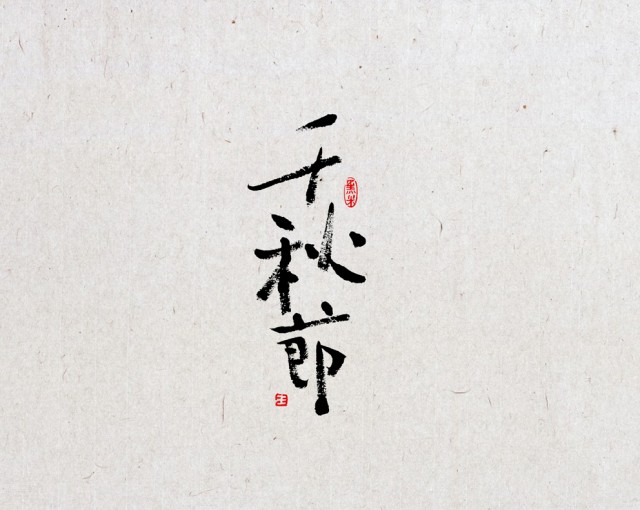 千秋節